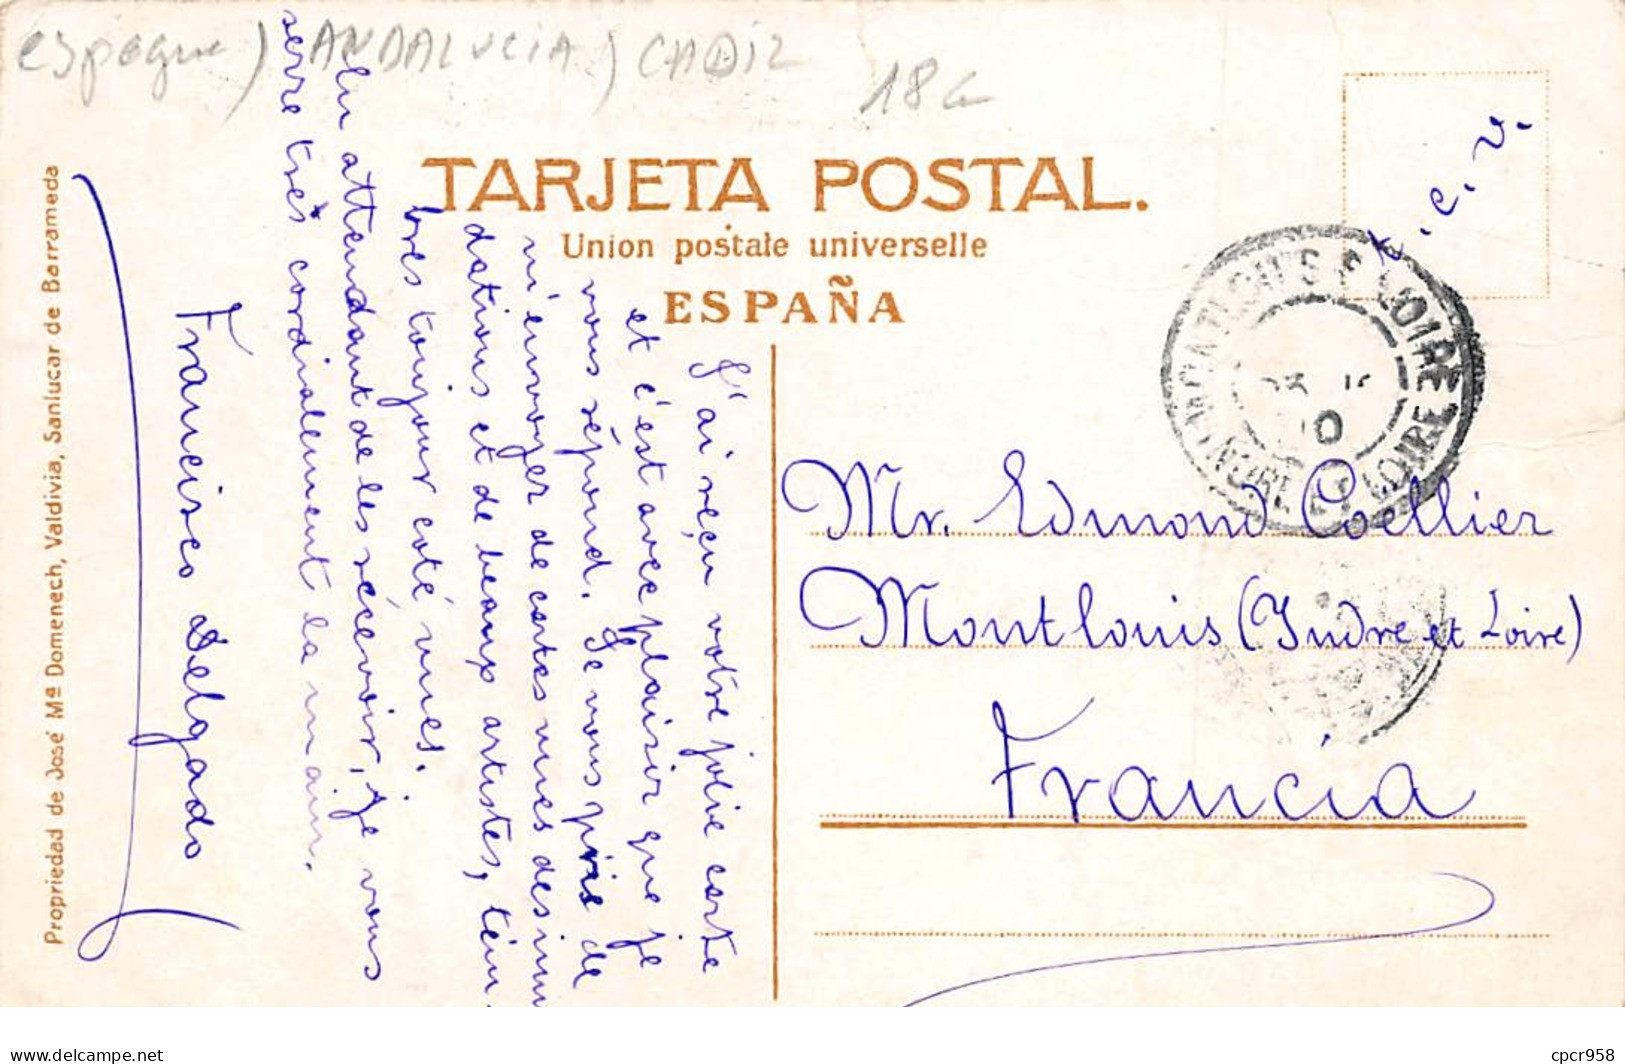 espagne) ANDALUCIA) CADIZ
18G
TARJETA POSTAL.
Union postale universelle
ESPAÑA
T. C. V.
MONTLOUIS S. LOIRE
INDRE ET LOIRE
Mr. Edmond Coellier
Montlouis (Indre et Loire)
Francia
J'ai reçu votre jolie carte
et c'est avec plaisir que je
vous répond. Je vous prie de
m'envoyer de cartes vues des inun
dations et de beaux artistes, tém
bres toujour coté vues.
En attendant de les récevoir, je vous
serre très cordialement la main.
Francisco Delgado
Propriedad de José Mª Domenech, Valdivia, Sanlucar de Barrameda
cpcr958